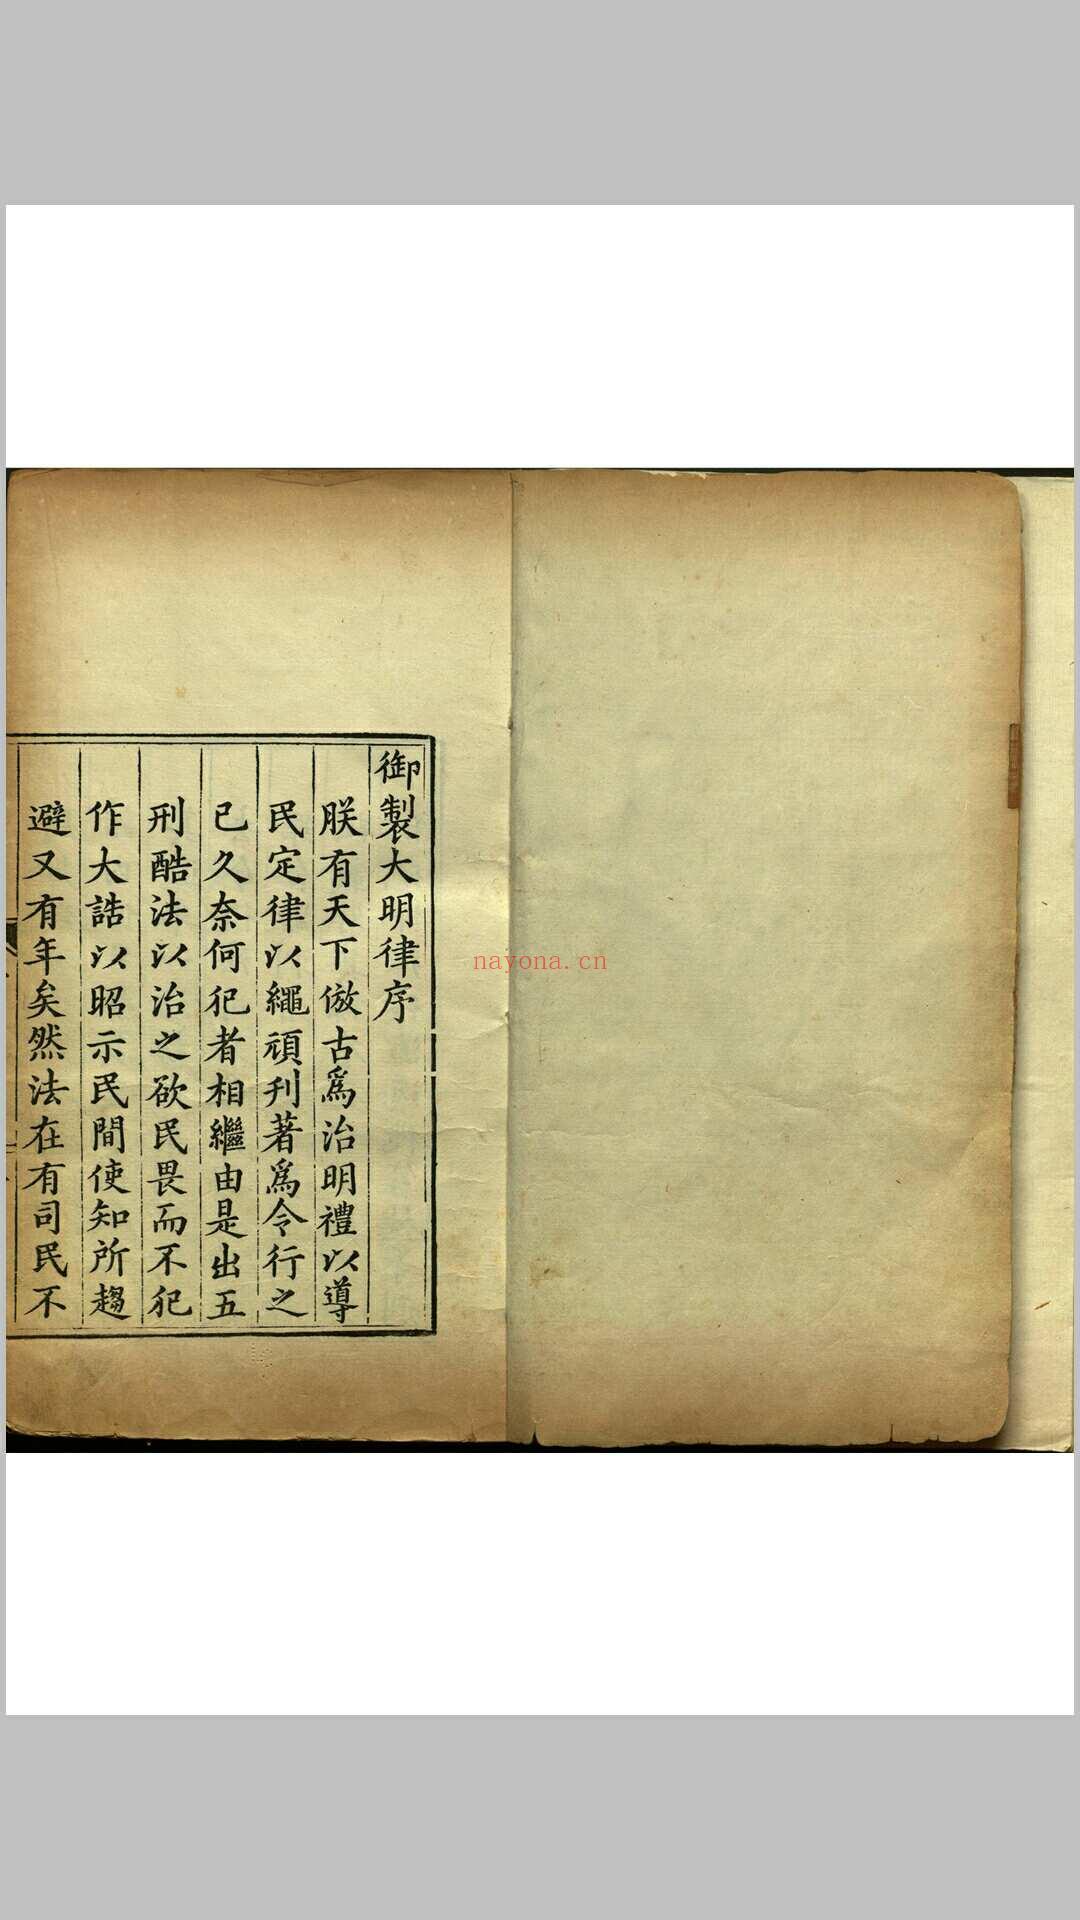 御製大明律序
朕有天下倣古爲治明禮以導
民定律以繩頑刋著爲令行之
已久奈何犯者相繼由是出五
刑酷法以治之欲民畏而不犯
作大誥以昭示民間使知所趨
避又有年矣然法在有司民不
nayona.cn